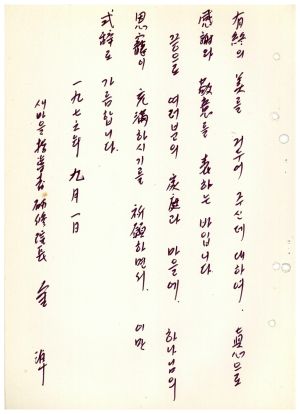 有終의 美를 거두어 주신데 대하여. 眞心으로
感謝와 敬意를 表하는 바입니다
끝으로 여러분의 家庭과 마을에. 하나님의
恩寵이 充滿하시기를 祈願하면서. 이만
式辭로 가름합니다.
一九七五年 九月 一日
새마을指導者硏修院長 金 準